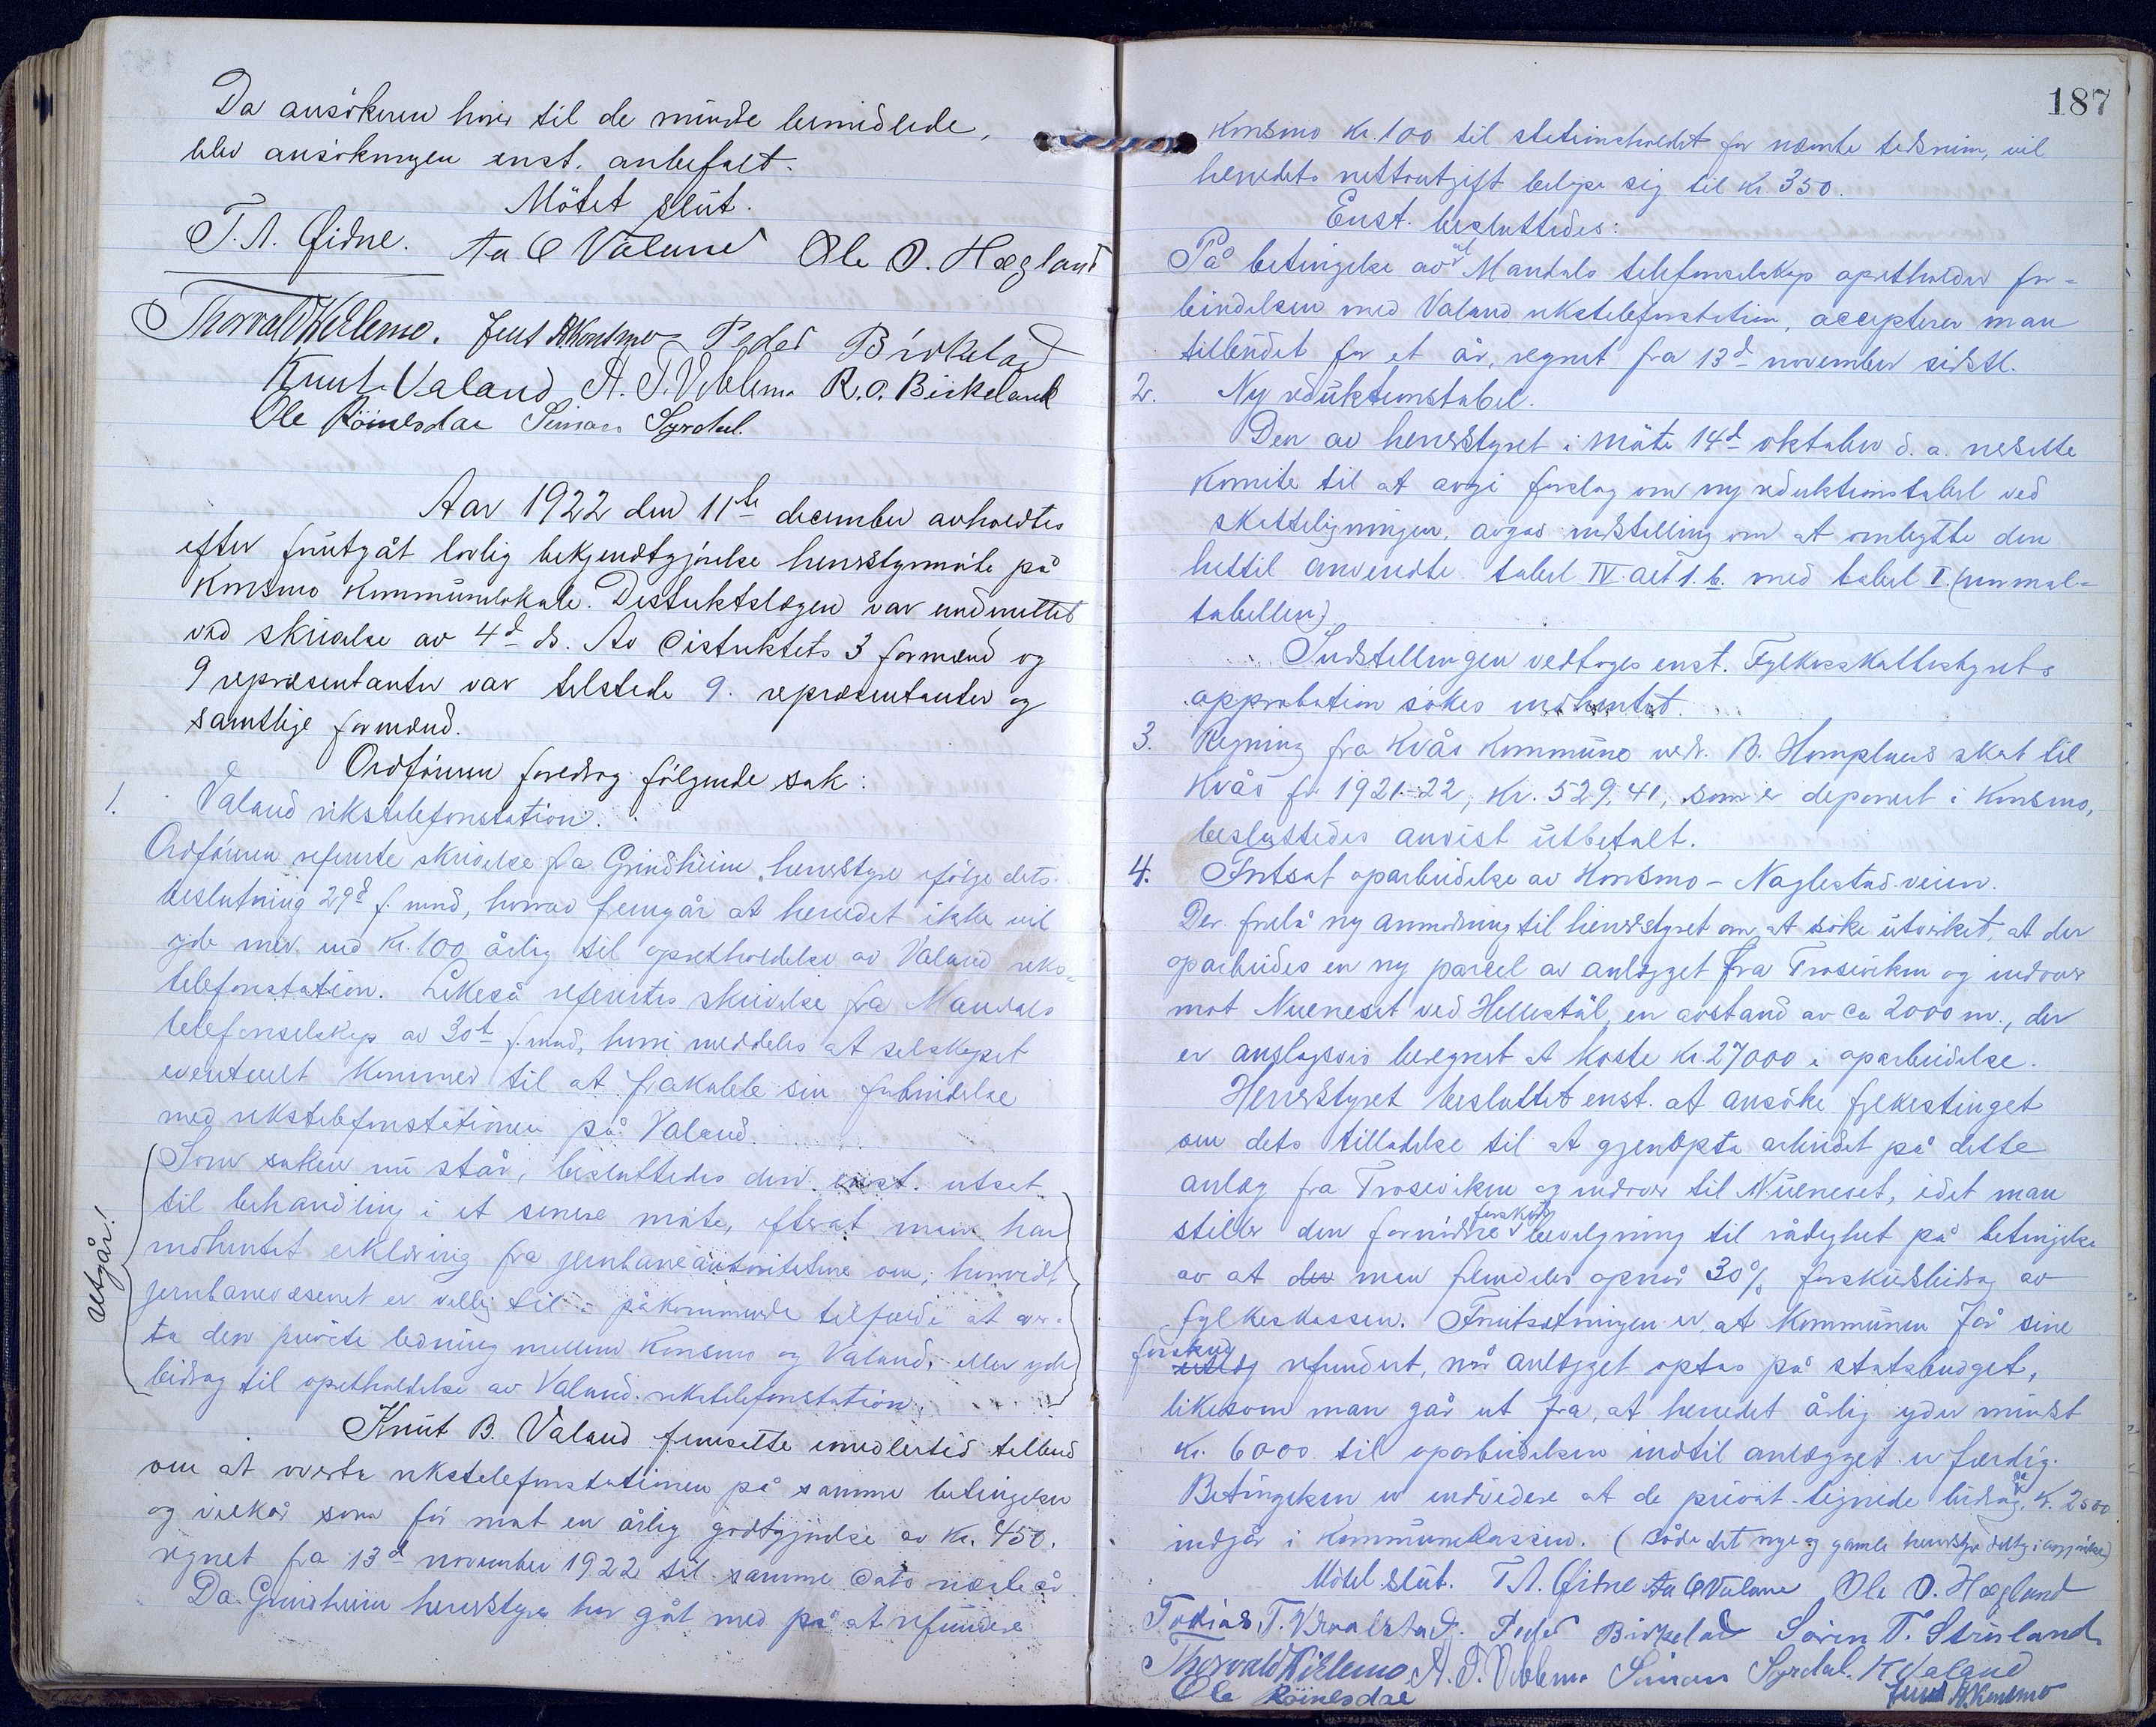 Da ansökeren hører til de mindre bemidlede,
blev ansökningen enst. anbefalt.
Mötet slut.
T. A. Øidne. Aa O Valand Ole O. Hægland
Thorvald Wiblemo. Jens A. Konsmo Peder Birkeland
Knut Valand A. T. Viblemo R. O. Birkeland
Ole Röinesdal Simon Syrdal.
Aar 1922 den 11te december avholdtes
efter forutgåt lovlig bekjendtgjörelse herredsstyremöte på
Konsmo Kommunelokale. Distriktslægen var underrettet
ved skrivelse av 4d ds. Av Distriktets 3 formænd og
9 repræsentanter var tilstede 9. repræsentanter og
samtlige formænd.
Ordföreren foredrog fölgende sak:
1. Valand rikstelefonstation.
Ordföreren refererte skrivelse fra Grindheim herredsstyre ifölge dets
beslutning 29d f. mnd, hvorav fremgår at herredet ikke vil
yde mer end Kr. 100 årlig til opretholdelse av Valand riks-
telefonstation. Likeså refereres skrivelse fra Mandals
telefonselskap av 30te f. mnd, hvori meddeles at selskapet
eventuelt kommer til at frakoble sin forbindelse
med rikstelefonstationen på Valand.
Som saken nu står, besluttedes den enst. utsat
til behandling i et senere möte, efterat man har
indhentet erklæring fra jernbaneautoritetene om, hvorvidt
jernbanevæsenet er villig til i påkommende tilfælde at over-
ta den private ledning mellem Konsmo og Valand, eller yde
bidrag til opretholdelse av Valand rikstelefonstation.
Utgår!
Knut B. Valand fremsatte imidlertid tilbud
om at overta rikstelefonstationen på samme betingelser
og vilkår som för mot en årlig godtgjörelse av Kr. 450.
regnet fra 13d november 1922 til samme Dato næste år
Da Grindheim herredsstyre har gåt med på at refundere
187
Konsmo Kr. 100 til stationsholdet for nævnte tidsrum, vil
herredets nettoutgift belöpe sig til Kr. 350.
Enst. besluttedes:
På betingelse av at Mandals telefonselskap opretholder for-
bindelsen med Valand rikstelefonstation, accepterer man
tilbudet for et år, regnet fra 13d november sidstl.
2. Ny reduktionstabel.
Den av herredsstyret i möte 14d oktober d. a. nedsatte
Komite til at avgi forslag om ny reduktionstabel ved
skatteligningen, avgav indstilling om at ombytte den
hittil anvendte tabel IV. alt 1. b. med tabel I. (normal-
tabellen)
Indstillingen vedtoges enst. Fylkesskattestyrets
approbation sökes indhentet.
3. Regning fra Kvås Kommune vedr. B. Homplands skat til
Kvås for 1921-22, Kr. 529,41, som er deponert i Konsmo,
besluttedes anvist utbetalt.
4. Fortsat oparbeidelse av Konsmo - Naglestad-veien.
Der forelå ny anmodning til herredsstyret om at söke utvirket, at der
oparbeides en ny parcel av anlægget fra Troseviken og indover
mot Nueneset ved Hellestöl, en avstand av ca 2000 m., der
er anslagsvis beregnet at koste Kr. 27000 i oparbeidelse.
Herredsstyret besluttet enst. at ansöke fylkestinget
om dets tilladelse til at gjenopta arbeidet på dette
anlæg fra Troseviken og indover til Nueneset, idet man
stiller den fornödne forskuds bevilgning til rådighet på betingelse
av at der man fremdeles opnår 30% forskudsbidrag av
fylkeskassen. Forutsetningen er, at Kommunen får sine
forskud utlæg refundert, når anlægget optas på statsbudget,
likesom man går ut fra, at herredet årlig yder mindst
Kr. 6000 til oparbeidelsen indtil anlægget er færdig.
Betingelsen er endvidere at de privat-tegnede bidrag, ca K. 2500
indgår i Kommunekassen. (Både det nye og gamle herredsstyre deltog i avgjörelsen)
Mötet slut. T. A. Øidne Aa O Valand Ole O. Hægland
Tobias T. Peder Birkeland Sören T. Stuland
Thorvald Wiblemo A. T. Viblemo Simon Syrdal. K Valand
Ole Röinesdal Jens A. Konsmo